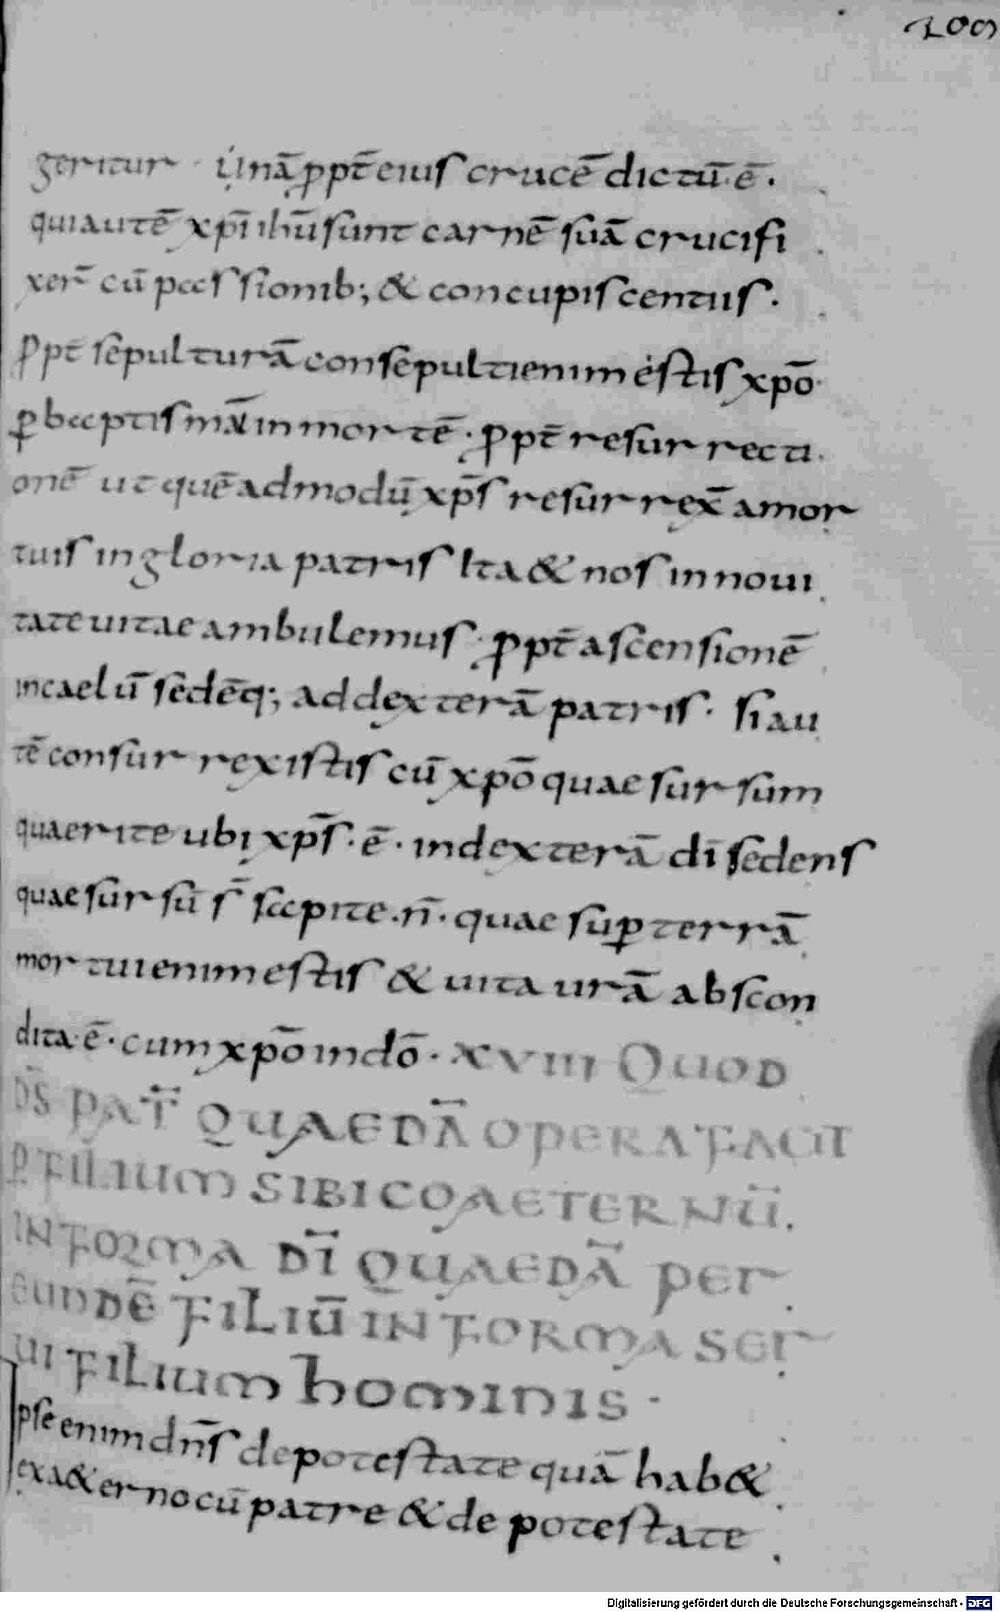 200
geritur · Unā ꝓpt̄ eius crucē dictū · ē ·
qui autē xp̄i ihū sunt carnē suā crucifi
xer̄ cū passionib; & concupiscentiis ·
ꝓpt̄ sepulturā consepulti enim estis xpō
ꝑ baptismū in mortē · ꝓpt̄ resurrecti
onē ut quē admodū xp̄s resurrex̄ a mor
tuis in gloria patris Ita & nos in noui
tate uitae ambulemus · ꝓpt̄ ascensionē
in caelū sedēq; ad dexterā patris · si au
tē consurrexistis cū xpō quae sursum
quaerite ubi xp̄s · ē · in dexterā dī sedens
quae sursū s̄ sapite · n̄ · quae suꝑ terrā
mortui enim estis & uita urā abscon
dita · ē · cum xpō in dō · XVIII QUOD
D̄S PAT̄ QUAEDĀ OPERA FACIT
Ꝑ FILIUM SIBI COAETERNŪ
IN FORMA DĪ QUAEDĀ PER
EUNDĒ FILIŪ IN FORMA SER
UI FILIUM HOMINIS ·
Ipse enim dn̄s de potestate quā hab&
ex a&erno cū patre & de potestate
Digitalisierung gefördert durch die Deutsche Forschungsgemeinschaft - DFG